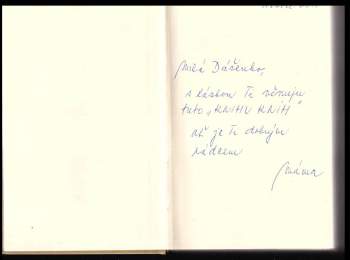 Milá Dášenko,
s láskou Ti věnuju
tuto „KNIHU KNIH"
ať je Ti dobrým
rádcem
máma